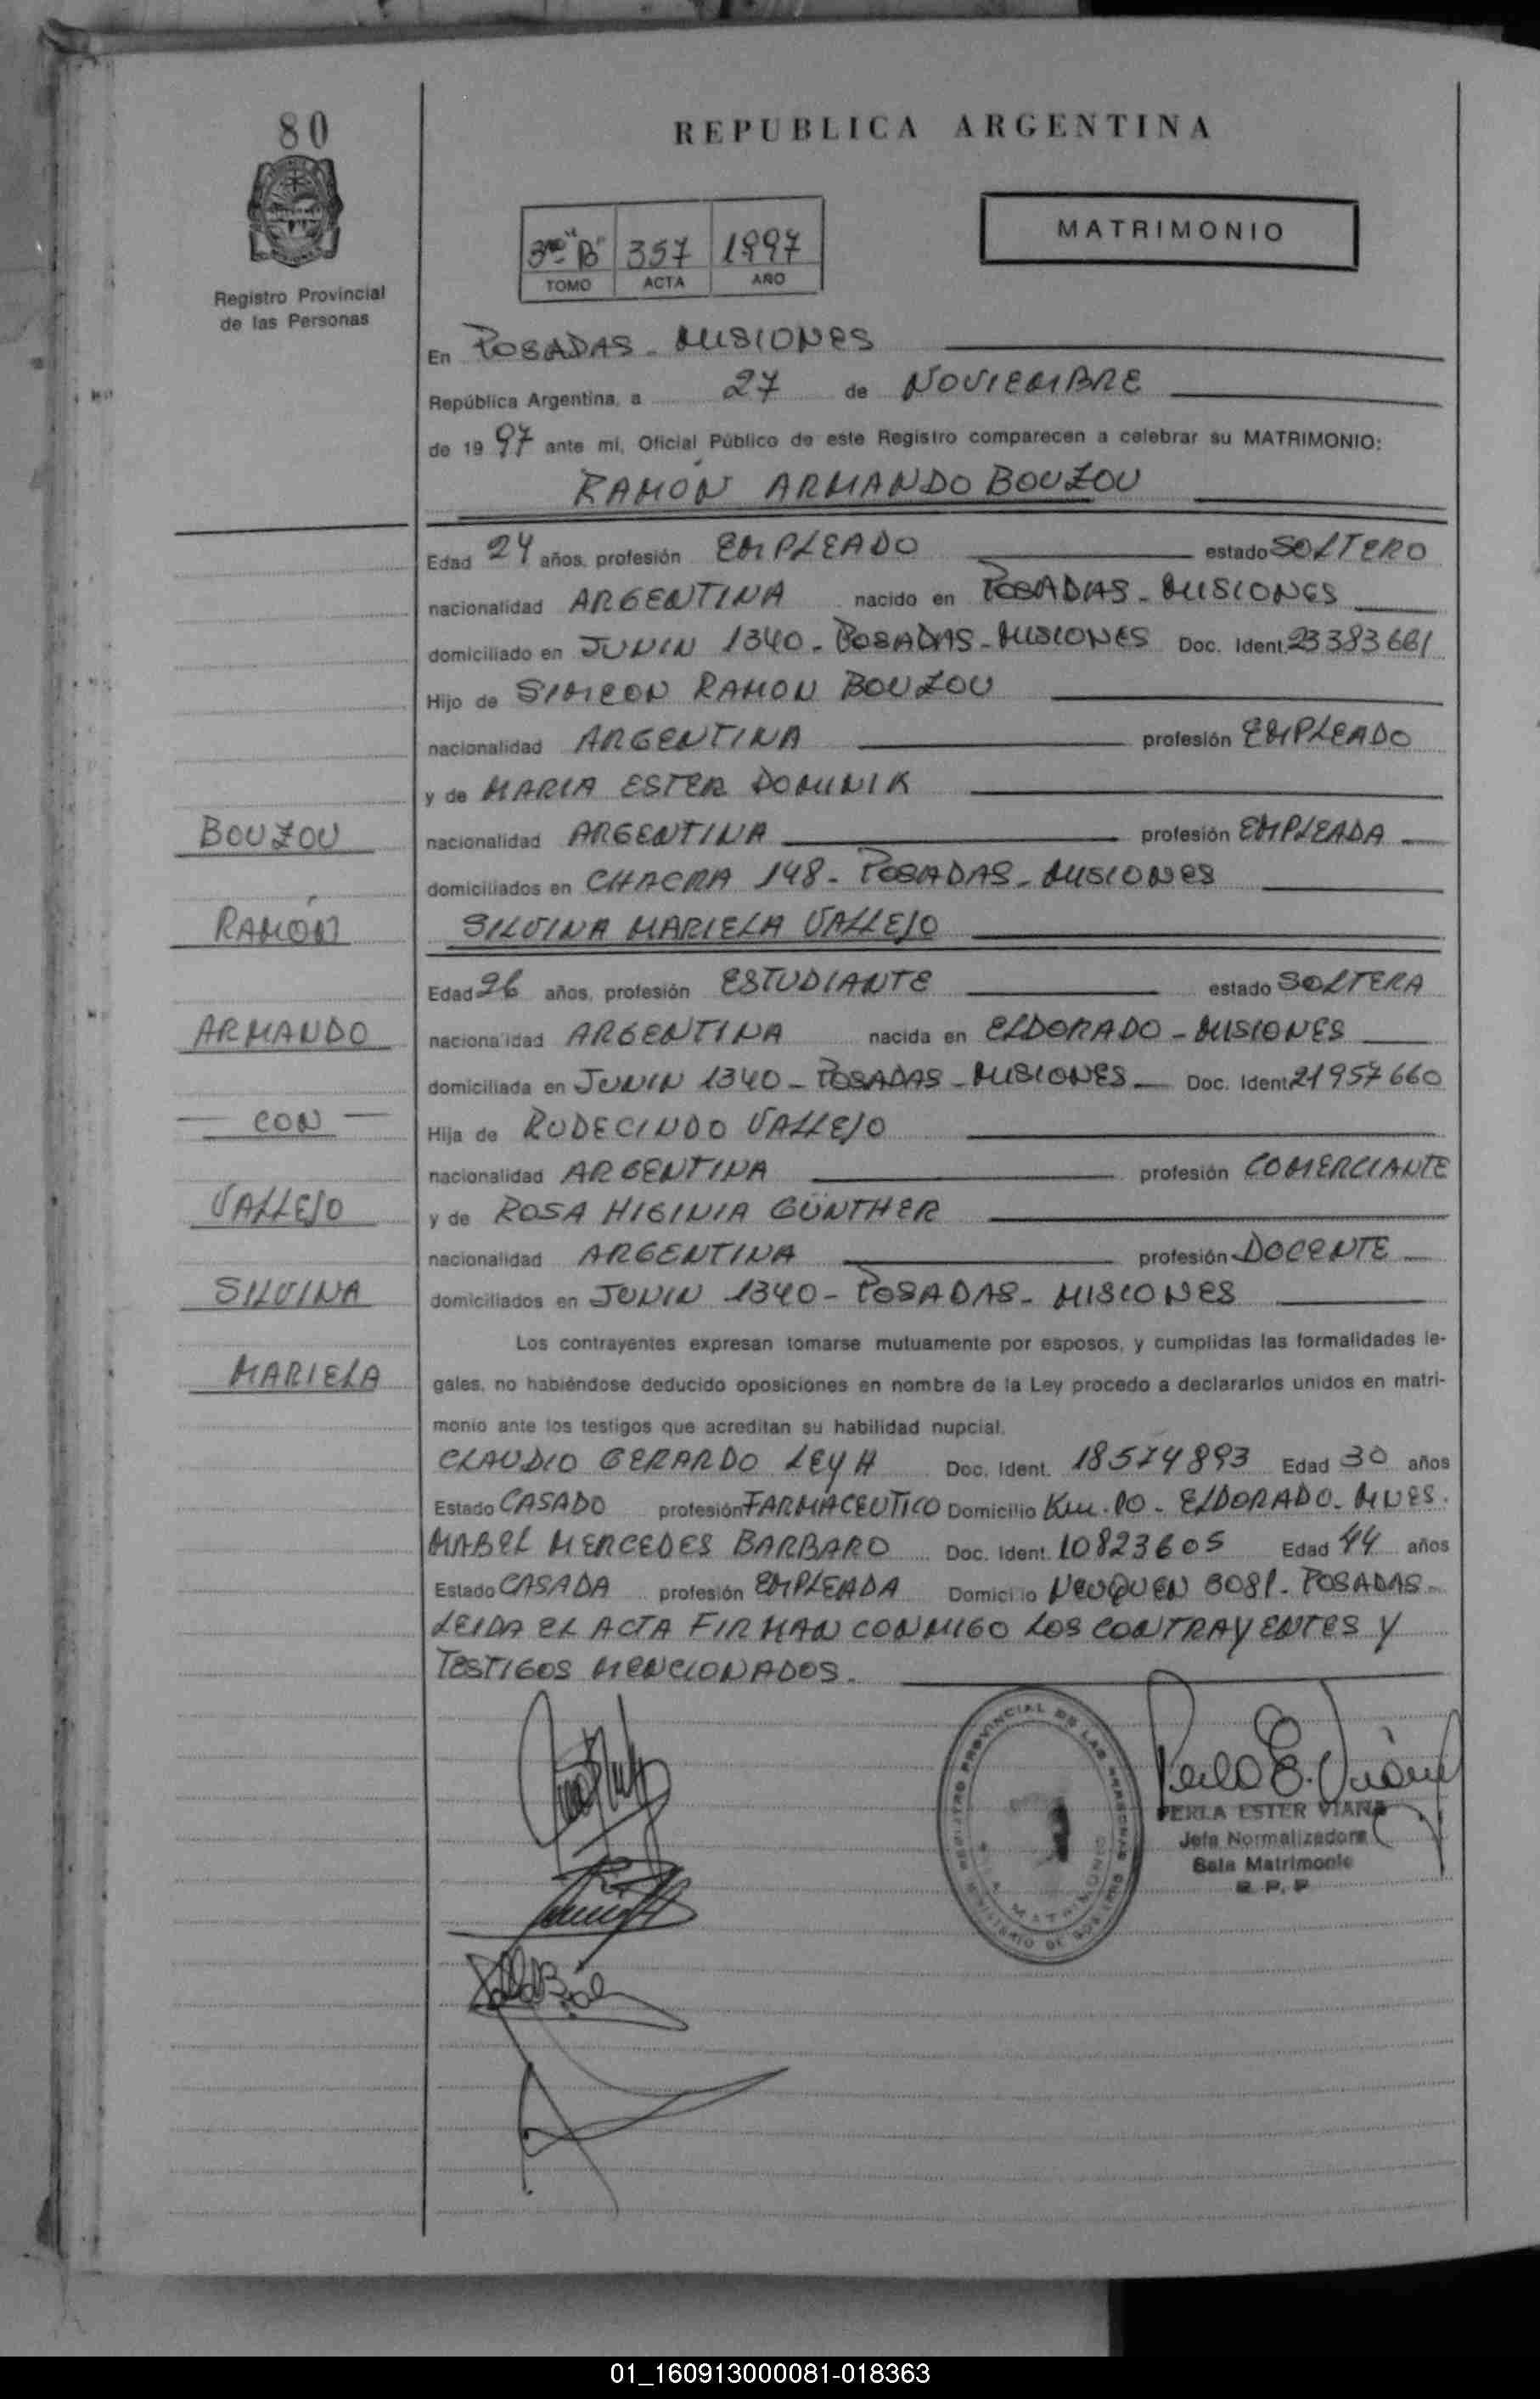 80
REPUBLICA ARGENTINA
3ro "B" 357 1997
TOMO ACTA AÑO
MATRIMONIO
Registro Provincial
de las Personas
En POSADAS - MISIONES
República Argentina, a 27 de NOVIEMBRE
de 19 97 ante mí, Oficial Público de este Registro comparecen a celebrar su MATRIMONIO:
RAMÓN ARMANDO BOUZOU
Edad 24 años, profesión EMPLEADO estado SOLTERO
nacionalidad ARGENTINA nacido en POSADAS - MISIONES
domiciliado en JUNIN 1340 - POSADAS - MISIONES Doc. Ident. 23383661
Hijo de SIMEON RAMON BOUZOU
nacionalidad ARGENTINA profesión EMPLEADO
y de MARIA ESTER DOMINIK
BOUZOU
nacionalidad ARGENTINA profesión EMPLEADA
domiciliados en CHACRA 148 - POSADAS - MISIONES
RAMÓN
SILVINA MARIELA VALLEJO
Edad 26 años, profesión ESTUDIANTE estado SOLTERA
ARMANDO
nacionalidad ARGENTINA nacida en ELDORADO - MISIONES
domiciliada en JUNIN 1340 - POSADAS - MISIONES - Doc. Ident. 21957660
— CON —
Hija de RUDECINDO VALLEJO
nacionalidad ARGENTINA profesión COMERCIANTE
VALLEJO
y de ROSA HIGINIA GÜNTHER
nacionalidad ARGENTINA profesión DOCENTE
SILVINA
domiciliados en JUNIN 1340 - POSADAS - MISIONES
Los contrayentes expresan tomarse mutuamente por esposos, y cumplidas las formalidades le-
MARIELA
gales, no habiéndose deducido oposiciones en nombre de la Ley procedo a declararlos unidos en matri-
monio ante los testigos que acreditan su habilidad nupcial.
CLAUDIO GERARDO LEYH Doc. Ident. 18574893 Edad 30 años
Estado CASADO profesión FARMACEUTICO Domicilio Km. 10 - ELDORADO - MNES.
MABEL MERCEDES BARBARO Doc. Ident. 10823605 Edad 44 años
Estado CASADA profesión EMPLEADA Domicilio NEUQUEN 3081 - POSADAS -
LEIDA EL ACTA FIRMAN CONMIGO LOS CONTRAYENTES Y
TESTIGOS MENCIONADOS.
REGISTRO PROVINCIAL DE LAS PERSONAS
MINISTERIO DE GOBIERNO
MATRIMONIO
Perla E. Viana
PERLA ESTER VIANA
Jefa Normalizadora
Sala Matrimonio
R. P. P
01_160913000081-018363